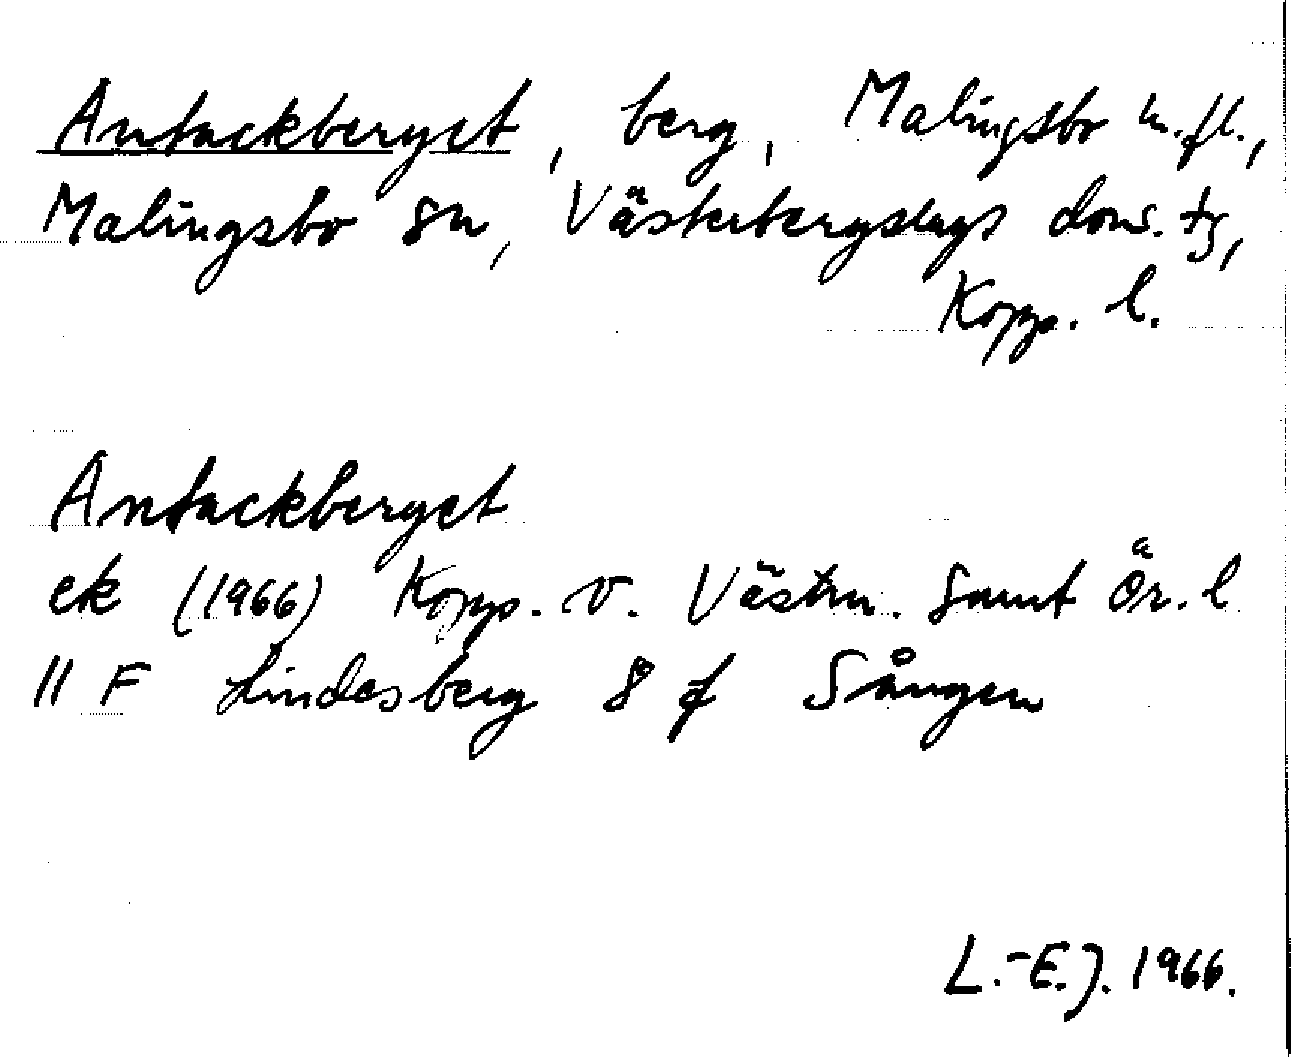 Antackberget, berg, Malingsbo m.fl.,
Malingsbo sn, Västerbergslags doms. tg,
Kopp. l.
Antackberget
ek (1966) Kopp. o. Västm. samt Ör. l
11 F Lindesberg 8 f Sången
L.-E.J. 1966.